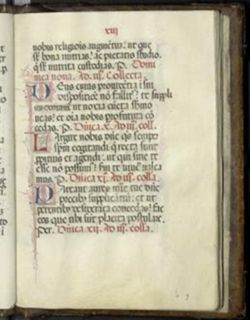 xiii
nobis religiōis augmētū: ut que
sūt bona nutrias: ac pietatis studio.
q̄ sūt nutrita custodias. P. Domi
nica nona. Ad. us. Collecta.
Deus cuius providētia ī sui
dispositiōe nō fallit: te suppli
exoramꝰ ut noxia cūcta submo
veas: et oīa nobis profutura cō
cedas. P. Dnīca x. ad. us. coll.
Largire nobis dnē qs semper
spm cogitandi q̄ recta sunt
ppitius et agendi: ut qui sine te
esse nō possumꝰ: scdm te vivē valea
mus. P. Dnīca xi. Ad us. colla.
Pateant aures mīe tue dnē
precibꝰ supplicātiū: et ut
petentibꝰ desiderata concedas: fac
eos que tibi sūt placita postulare.
Per. Dnīca xii. Ad us. colla.